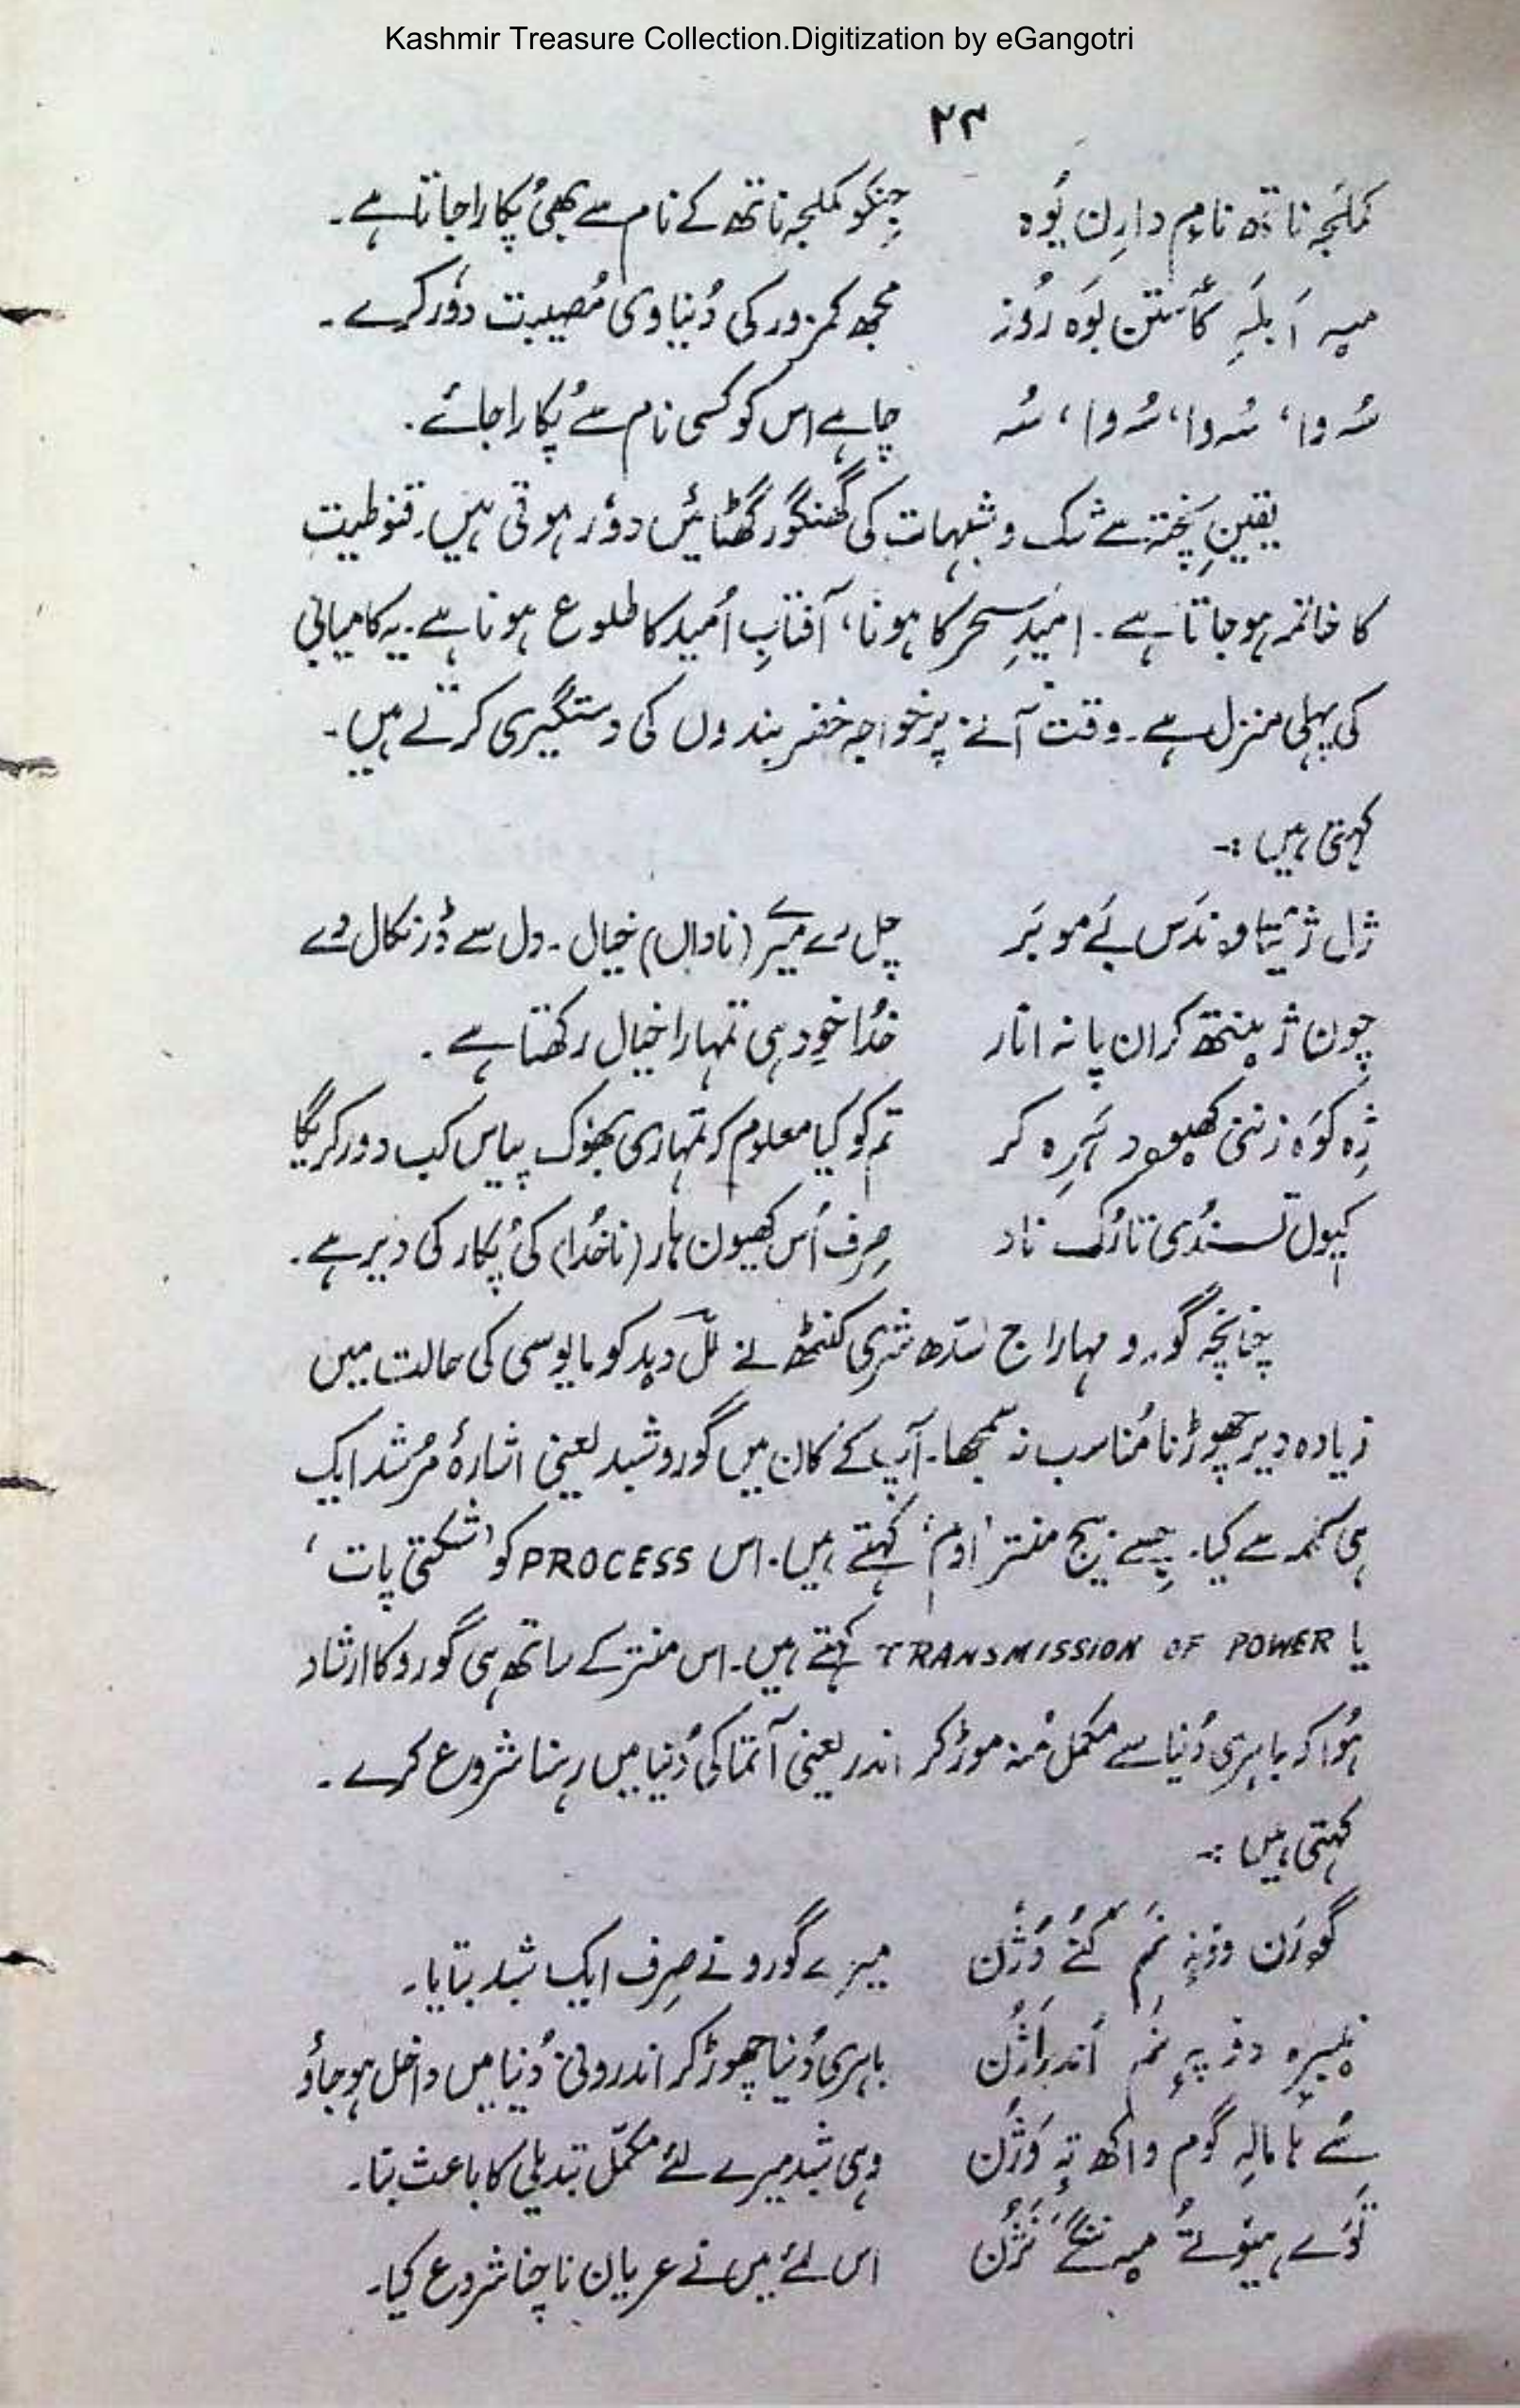 Kashmir Treasure Collection.Digitization by eGangotri
۲۳
کملجہ ناتھ نام دارِن یُوہ جِنکو کملجہ ناتھ کے نام سے بھی پُکارا جاتا ہے۔
میہ اَبلہِ کٲستن بَوہ رُوز مجھ کمزور کی دُنیاوی مُصیبت دُور کرے۔
سُہ وا، سُہ وا، سُہ وا، سُہ چاہے اس کو کسی نام سے پُکارا جائے۔
یقینِ پختہ سے شک و شبہات کی گھنگور گھٹائیں دُور ہوتی ہیں۔ قنوطیت
کا خاتمہ ہو جاتا ہے۔ اُمیدِ سحر کا ہونا، آفتابِ اُمید کا طلوع ہونا ہے۔ یہ کامیابی
کی پہلی منزل ہے۔ وقت آنے پر خواجہ خضر بندوں کی دستگیری کرتے ہیں۔
کہتی ہیں :-
ژل ژیتا وندَس بَے مو بَر چل رے میرے (ناداں) خیال۔ دل سے ڈر نکال دے
چون ژینتھ کران پانہ انار خُدا خود ہی تمہارا خیال رکھتا ہے۔
ژِہ کوَہ زننی کھیود ہَرِہ کر تم کو کیا معلوم کہ تمہاری بھُوک پیاس کب دور کریگا
کیول تسندُی تارُک ناد صِرف اُس کھیون ہار (ناخُدا) کی پُکار کی دیر ہے۔
چنانچہ گورو مہاراج سدّھ شری کنٹھ نے للّ دید کو مایوسی کی حالت میں
زیادہ دیر چھوڑنا مُناسب نہ سمجھا۔ آپ کے کان میں گورو شبد لعینی اشارۂ مُرشد ایک
ہی کلمہ سے کیا۔ جِسے بیج منتر 'اوم' کہتے ہیں۔ اس PROCESS کو 'شکتی پات'
یا TRANSMISSION OF POWER کہتے ہیں۔ اس منتر کے ساتھ ہی گورو کا ارشاد
ہُوا کہ باہری دُنیا سے مکمل مُنہ موڑ کر اندر یعنی آتما کی دُنیا میں رہنا شروع کرے۔
کہتی ہیں :-
گورَن وونہِ نَم کُنے وُژُن میرے گورو نے صِرف ایک شبد بتایا۔
نیبرہ دوپہِ نَم اَندر اَژُن باہری دُنیا چھوڑ کر اندرونی دُنیا میں داخل ہو جاؤ
سُے ہا مالہِ گوم واکھ تہِ وَژُن وہی شبد میرے لئے مکمّل تبدیلی کا باعث بنا۔
تَوَے ہیوتُے میہ ننگَے نَژُن اس لئے میں نے عریان ناچنا شروع کیا۔